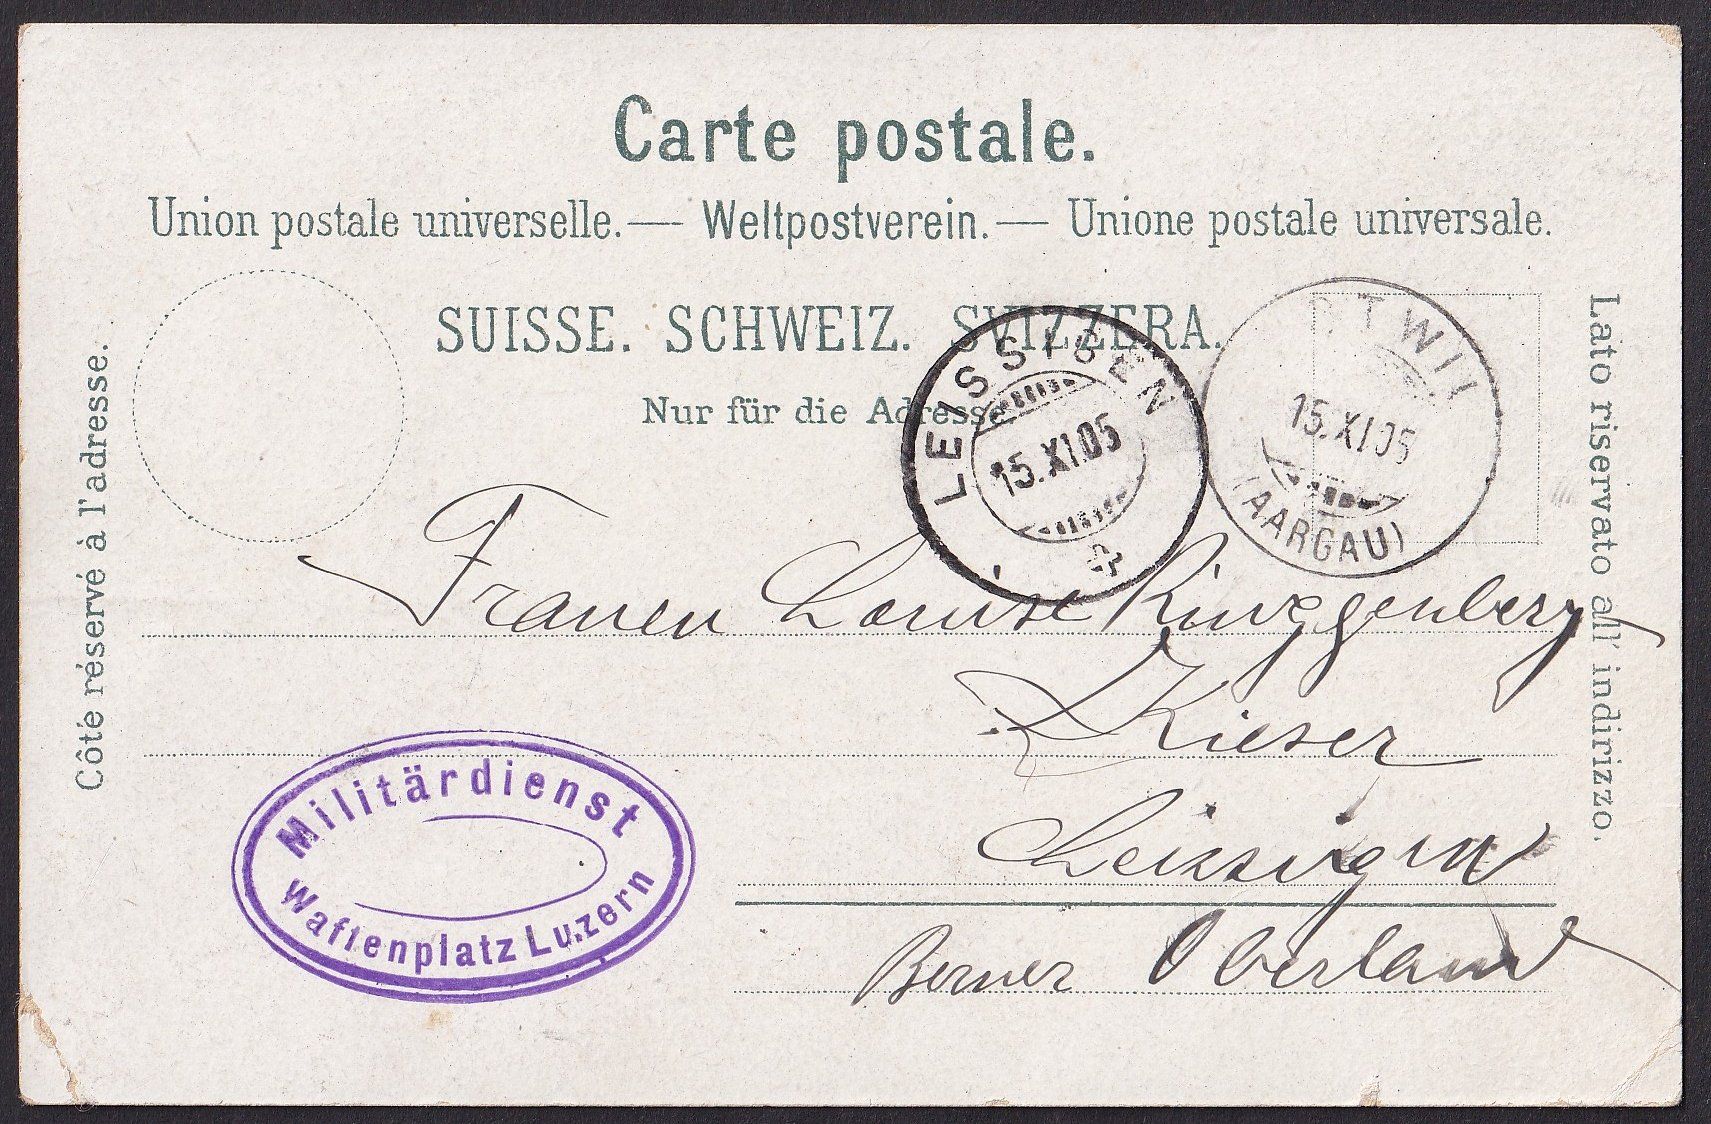 Carte postale.
Union postale universelle.— Weltpostverein.— Unione postale universale.
SUISSE. SCHWEIZ. SVIZZERA.
Nur für die Adresse
Côté réservé à l'adresse.
Lato riservato all' indirizzo.
LEISSIGEN
15.XI.05
15.XI.05
(AARGAU)
Frauen Louise Ringgenberg
Kieser
Leissigen
Berner Oberland
Militärdienst
Waffenplatz Luzern